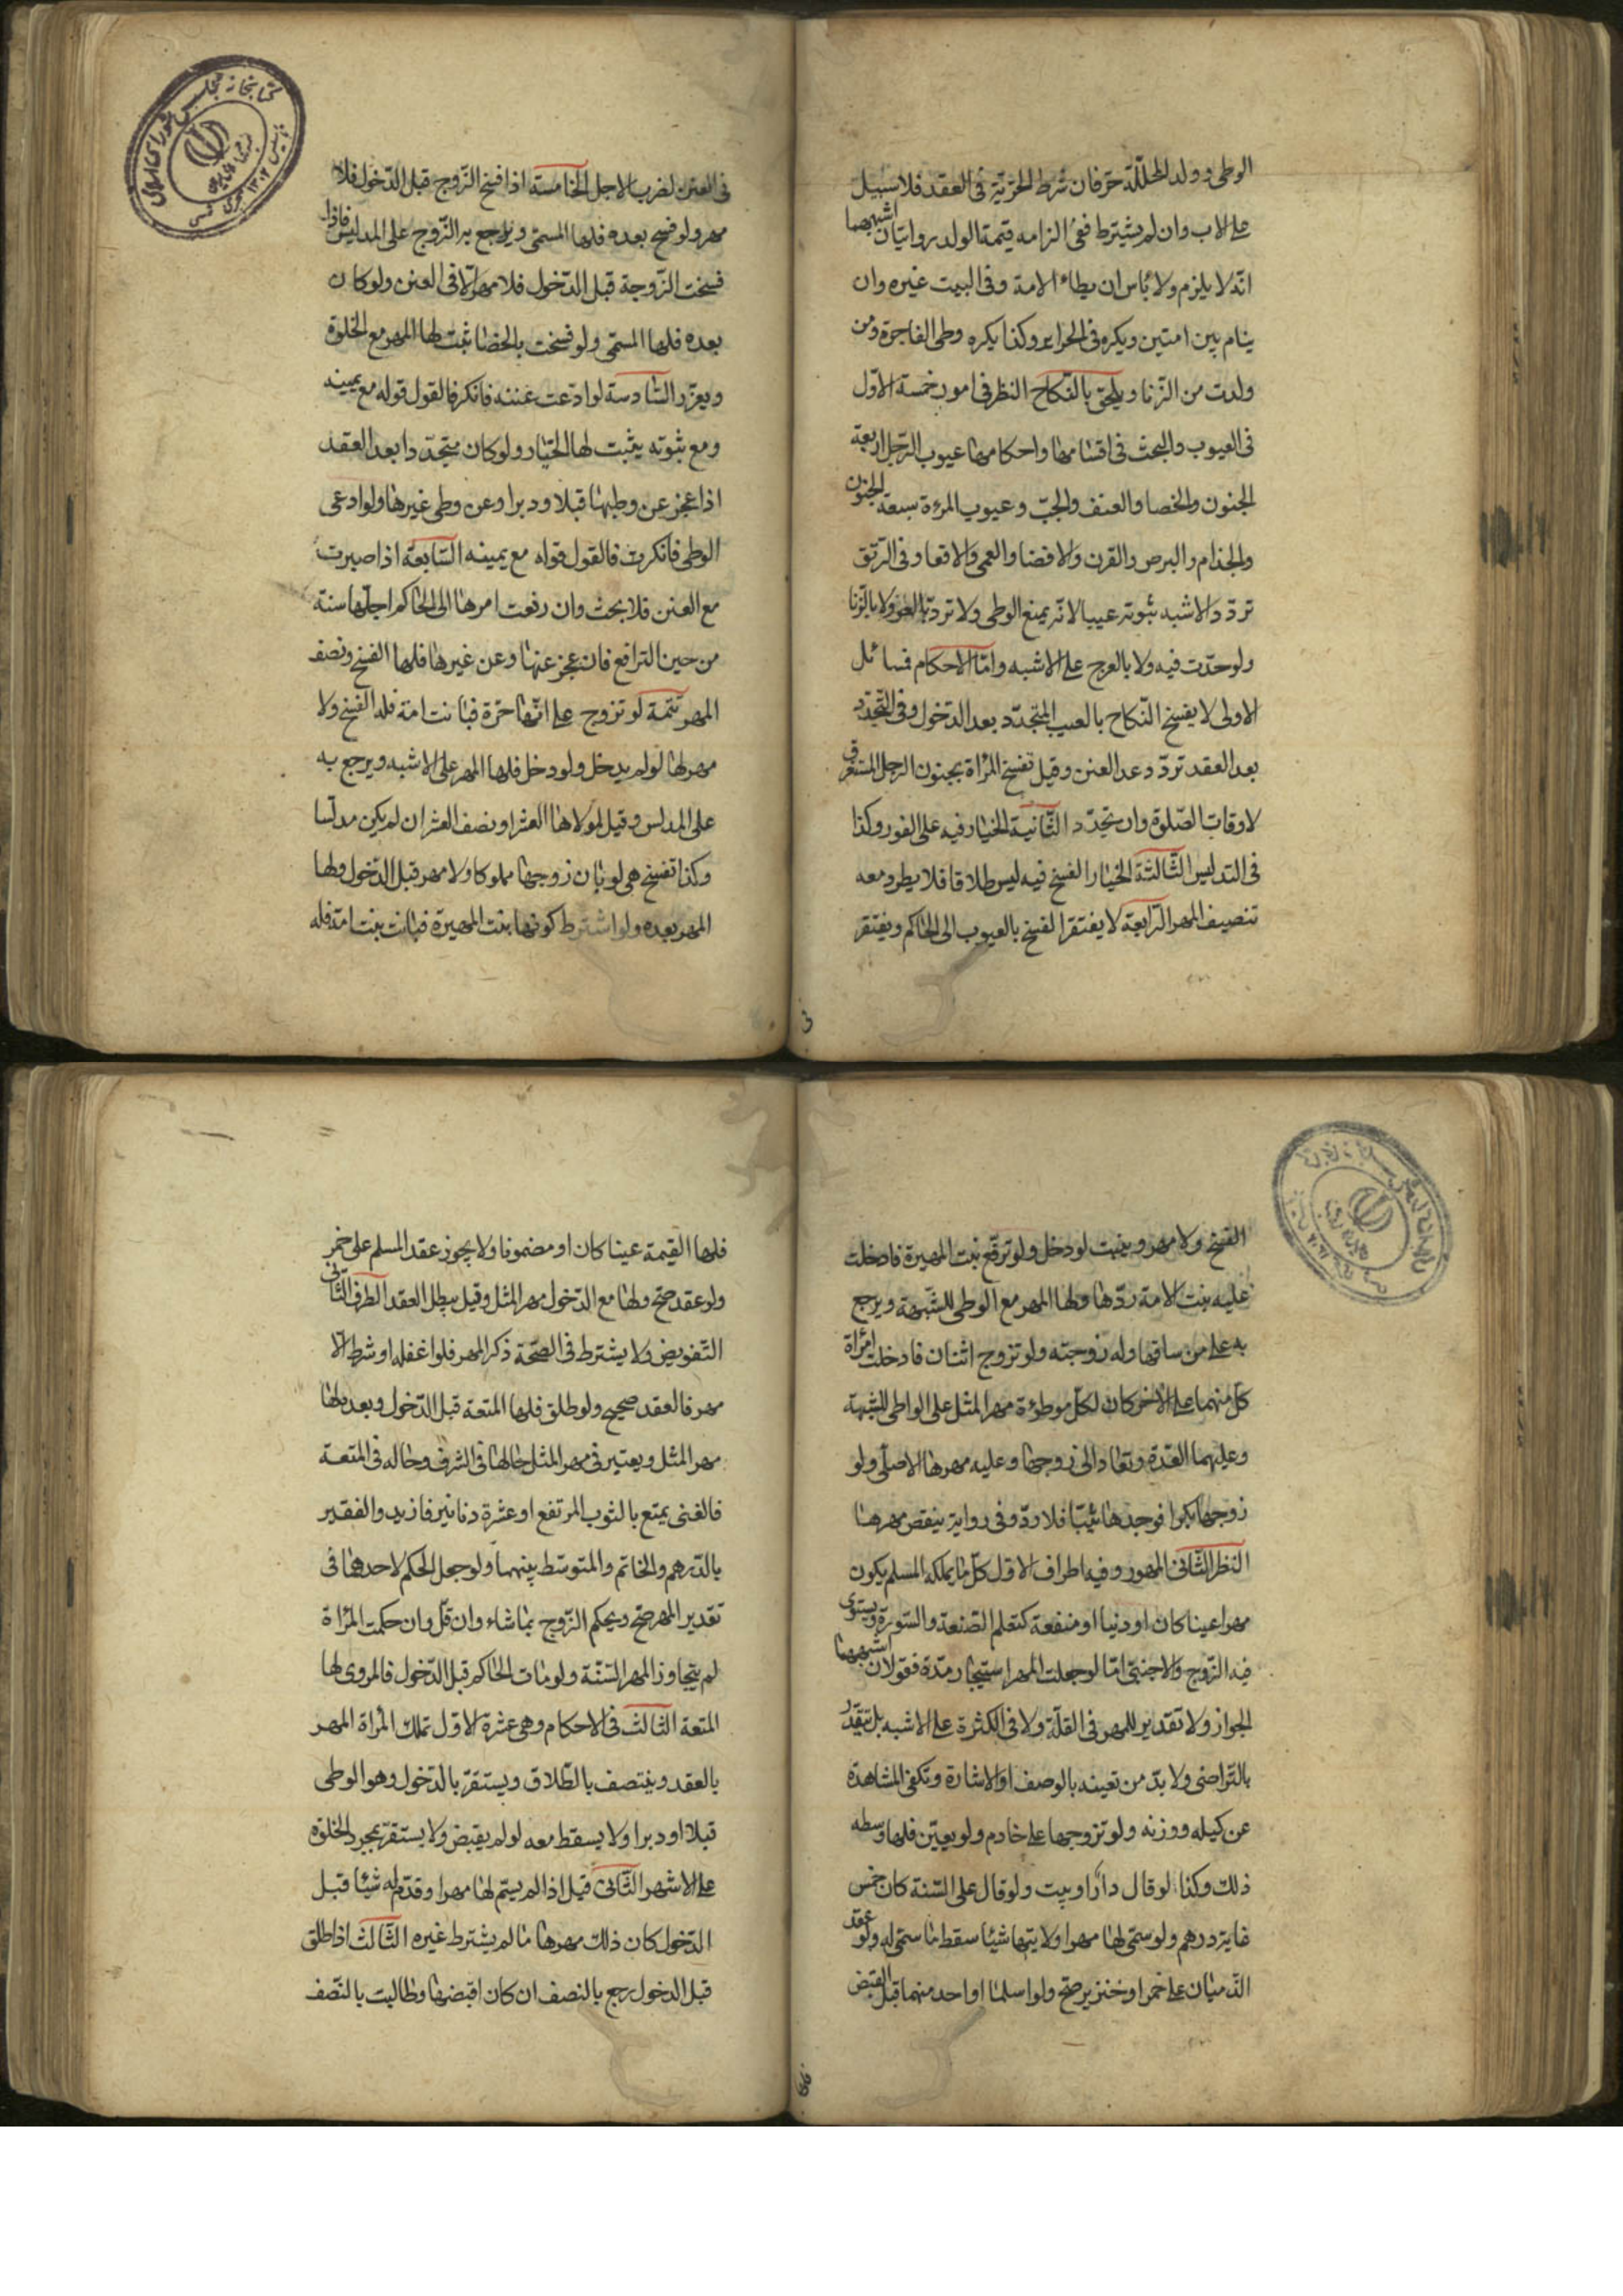 الوطی و ولد المحللّة حرّ فان شرط الحرّیة فی العقد فلا سبیل
علی الاب وان لم یشترط ففی الزامه قیمة الولد روایتان اشبهها
انّه لا یلزم ولا بأس ان یطاء الامة وفی البیت غیره وان
ینام بین امتین ویکره فی الحرایر وکذا یکره وطی الفاجرة ومن
ولدت من الزّنا ویلحق بالنّکاح النظر فی امور خمسة الاوّل
فی العیوب والبحث فی اقسامها واحکامها عیوب الرّجل اربعة
الجنون والخصا والعنن والجبّ وعیوب المرءة سبعة الجنون
والجذام والبرص والقرن والافضا والعمی والاقعا وفی الرّتق
تردّد والاشبه ثبوته عیبا لانّه یمنع الوطی ولا تردّ بالعور ولا بالزنا
ولو حدّت فیه ولا بالعرج علی الاشبه وامّا الاحکام فمسائل
الاولی لا یفسخ النّکاح بالعیب المتجدّد بعد الدخول وفی التّجدّد
بعد العقد تردّد عدا العنن وقیل تفسخ المرأة بجنون الرجل المستغرق
لاوقات الصّلوة وان تجدّد الثّانیة الخیار فیه علی الفور وکذا
فی التدلیس الثّالثة الخیار الفسخ فیه لیس طلاقا فلا یطرد معه
تنصیف المهر الرّابعة لا یفتقر الفسخ بالعیوب الی الحاکم ویفتقر
فی
فی العنن لضرب الاجل الخامسة اذا فسخ الزّوج قبل الدّخول فلا
مهر ولو فسخ بعده فلها المسمّی ویرجع به الزّوج علی المدلیس فاذا
فسخت الزّوجة قبل الدّخول فلا مهر الّا فی العنن ولو کان
بعده فلها المسمّی ولو فسخت بالخصا ثبت لها المهر مع الخلوة
ویعزّر السّادسة لو ادّعت عننه فانکر فالقول قوله مع یمینه
ومع ثبوته یثبت لها الخیار ولو کان متجدّدا بعد العقد
اذا عجز عن وطیها قبلا ودبرا وعن وطی غیرها ولو ادعی
الوطی فانکرت فالقول قوله مع یمینه السّابعة اذا صبرت
مع العنن فلا بحث وان رفعت امرها الی الحاکم اجلّها سنة
من حین الترافع فان عجز عنها وعن غیرها فلها الفسخ ونصف
المهر تتمة لو تزوج علی انّها حرّة فبانت امة فله الفسخ ولا
مهر لها لو لم یدخل ولو دخل فلها المهر علی الاشبه ویرجع به
علی المدلس وقیل لمولاها العشر او نصف العشر ان لم یکن مدلّسا
وکذا تفسخ هی لو بان زوجها مملوکا ولا مهر قبل الدّخول ولها
المهر بعده ولو اشترط کونها بنت المهیرة فبانت بنت امة فله
الفسخ ولا مهر ویثبت لو دخل ولو تزوّج بنت المهیرة فادخلت
علیه بنت الامة ردّها ولها المهر مع الوطی للشبهة ویرجع
به علی من ساقها وله زوجته ولو تزوج اثنان فادخلت امرأة
کلّ منهما علی الآخر کان لکلّ موطوءة مهر المثل علی الواطی للشبهة
وعلیهما العدّة وتعاد الی زوجها وعلیه مهرها الاصلّی ولو
زوجها بکرا فوجدها ثیّبا فلا ردّ وفی روایة ینقص مهرها
النظر الثّانی المهور وفیه اطراف الاوّل کلّ ما یملکه المسلم یکون
مهرا عینا کان او دینا او منفعة کتعلم الصّنعة والسّورة ویستوی
فیه الزّوج والاجنبیّ امّا لو جعلت المهر استیجاره مدّة فقولان اشبههما
الجواز ولا تقدیر للمهر فی القلّة ولا فی الکثرة علی الاشبه بل یتقدّر
بالتّراضی ولا بدّ من تعیینه بالوصف او الاشارة وتکفی المشاهدة
عن کیله ووزنه ولو تزوجها علی خادم ولو یعیّن فلها وسطه
ذلک وکذا لو قال دارًا او بیت ولو قال علی السّنة کان خمس
مایة درهم ولو سمّی لها مهرا ولابیها شیئا سقط ما سمّی له ولو عقد
الذمیّان علی خمر او خنزیر صحّ ولو اسلما او احد منهما قبل القبض
فلها
فلها القیمة عینا کان او مضمونا ولا یجوز عقد المسلم علی خمر
ولو عقد صحّ ولها مع الدّخول مهر المثل وقیل یبطل العقد الطرف الثّانی
التّفویض ولا یشترط فی الصّحّة ذکر المهر فلو اغفله او شرط الّا
مهر فالعقد صحیح ولو طلق فلها المتعة قبل الدّخول وبعده لها
مهر المثل ویعتبر فی مهر المثل حالها فی الشرف وحاله فی المتعة
فالغنی یمتع بالثوب المرتفع او عشرة دنانیر فازید والفقیر
بالدّرهم والخاتم والمتوسّط بینهما ولو جعل الحکم لاحدهما فی
تقدیر المهر صحّ ویحکم الزّوج بما شاء وان قلّ وان حکمت المرأة
لم یتجاوز المهر السّنّة ولو مات الحاکم قبل الدّخول فالمروی لها
المتعة الثالث فی الاحکام وهی عشرة الاوّل تملک المرأة المهر
بالعقد وینتصف بالطّلاق ویستقرّ بالدّخول وهو الوطی
قبلا او دبرا ولا یسقط معه لو لم یقبض ولا یستقرّ بمجرد الخلوة
علی الاشهر الثّانی قیل اذا لم یسّم لها مهرا وقدّم له شیئا قبل
الدّخول کان ذلک مهرها ما لم یشترط غیره الثّالث اذا طلق
قبل الدخول رجع بالنصف ان کان اقبضها وطالبت بالنّصف